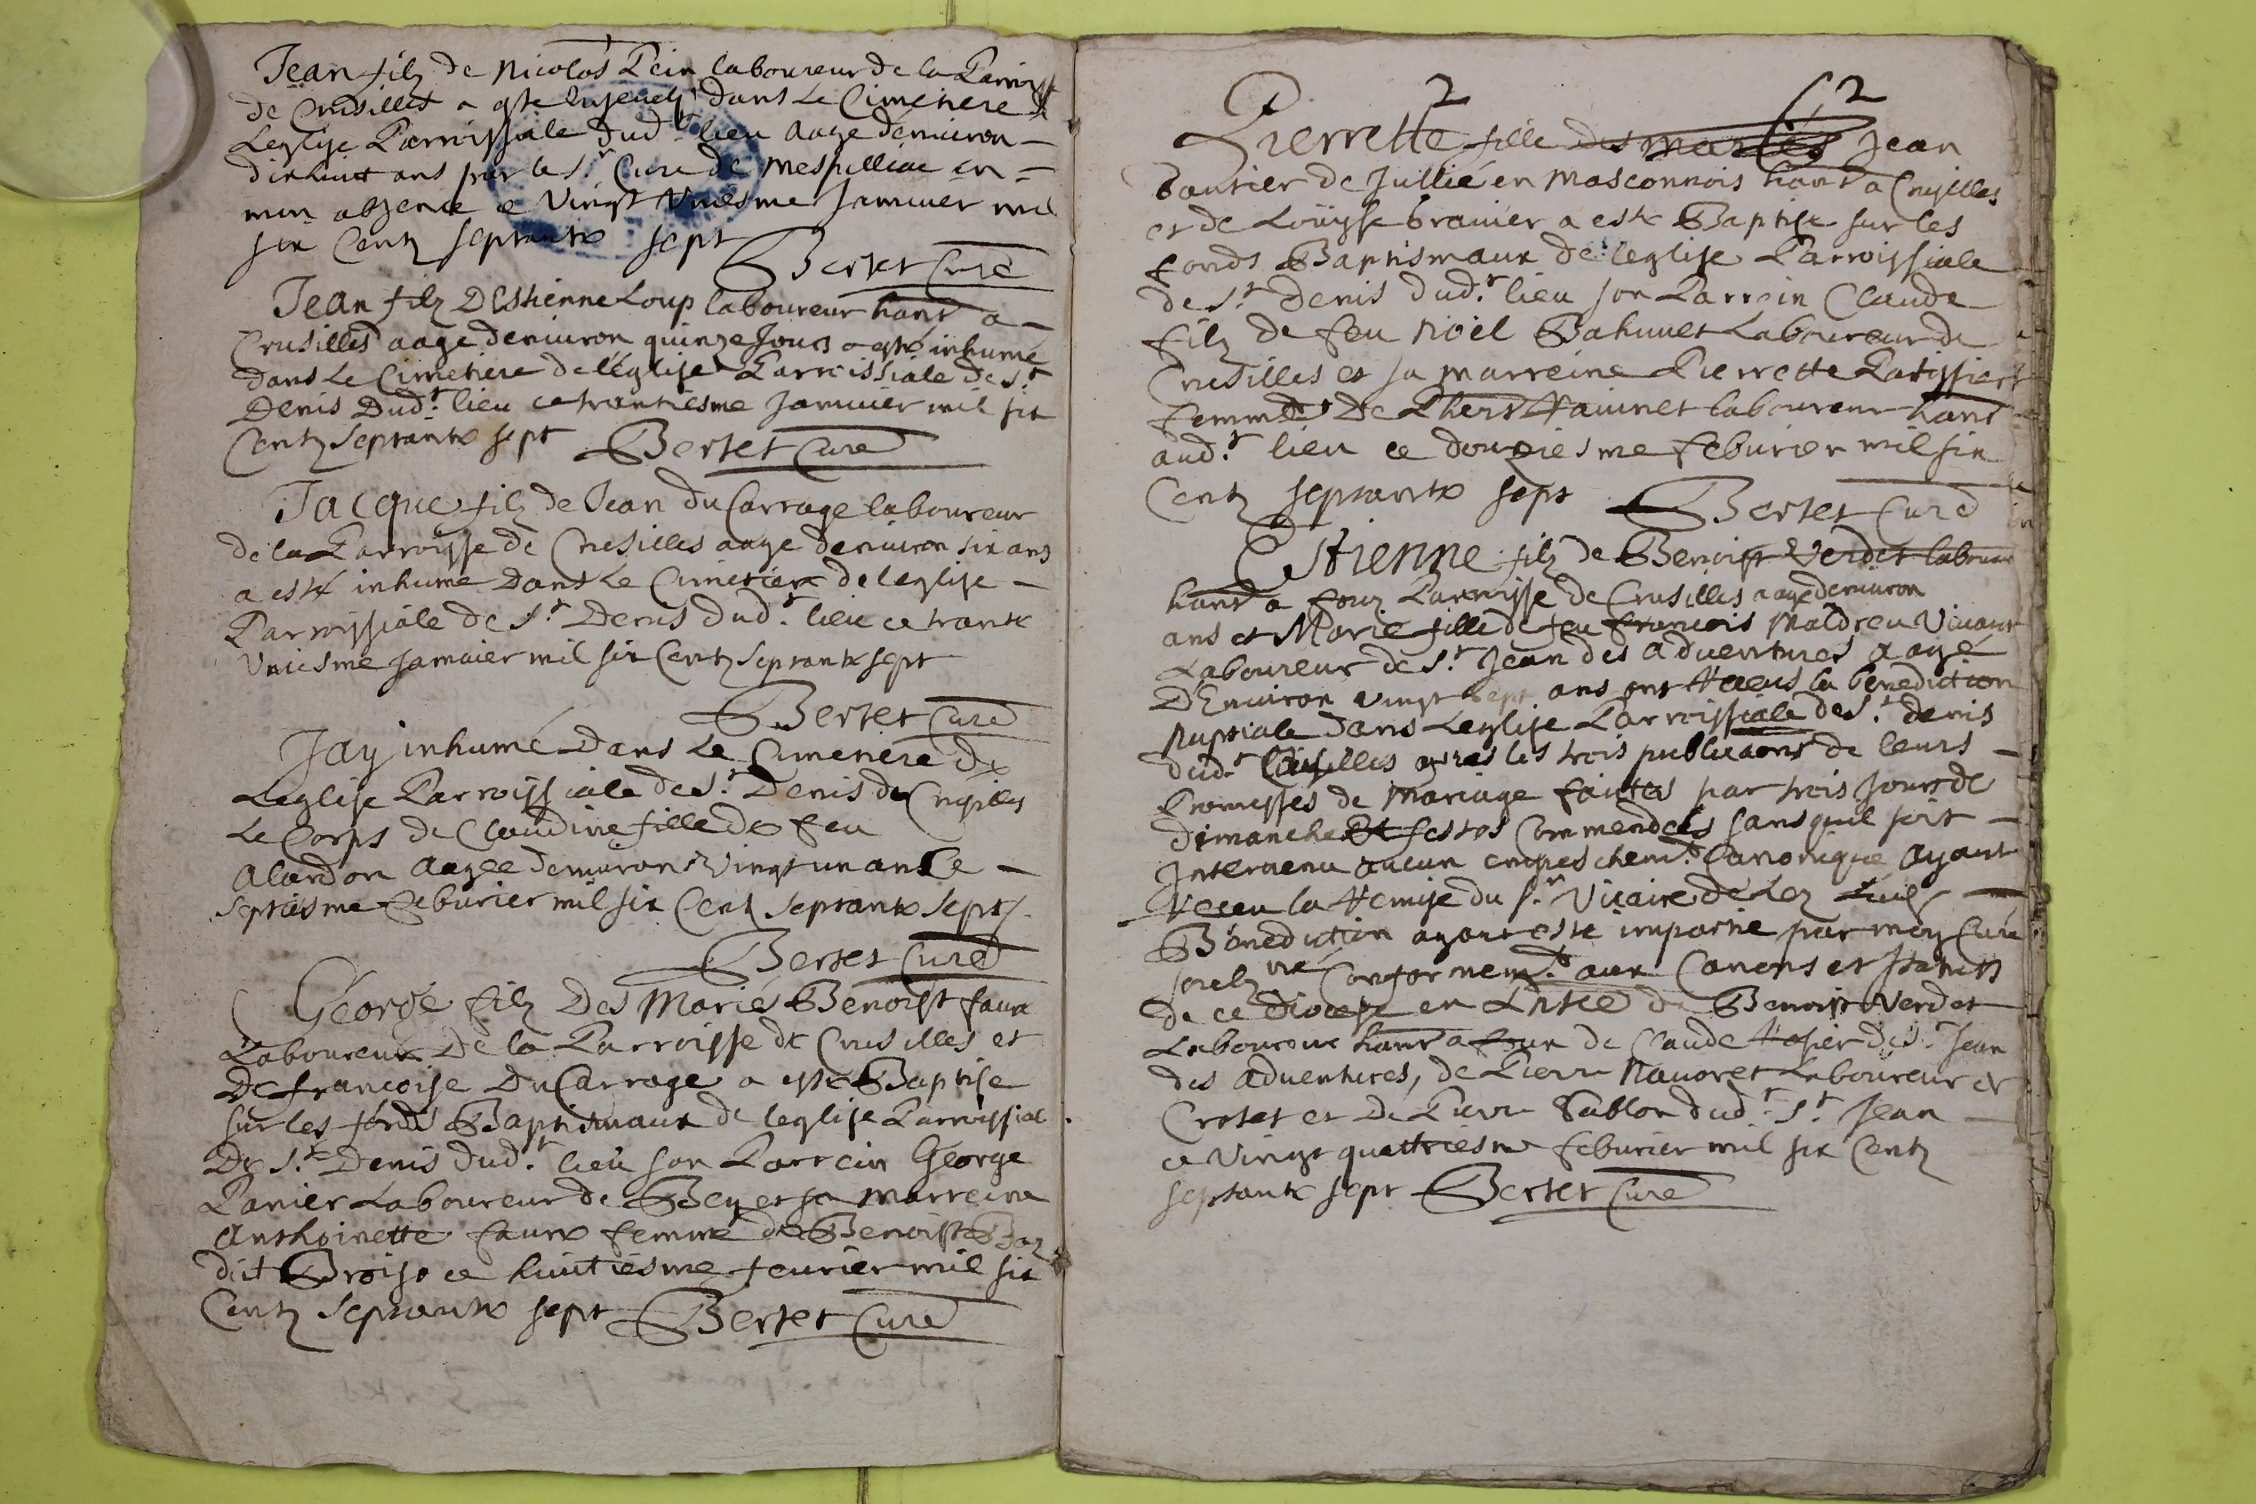 Jean filz de Nicolas Pein laboureur de la Parroiss
de Crusilles a este Ensevely dans Le Cimetiere de
Leglise Parroissiale dud.t lieu aage denuiron
dixhuit ans par le S.r Curé de mespilliac en
mon absence ce Vingt Vniesme Januier mil
six Centz septante sept
Bertet Curé
Jean filz DEstienne Loup laboureur hant a
Crusilles aagé denuiron quinze Jours a esté inhumé
dans Le Cimetiere de lEglise Parroissiale de S.t
Denis Dud.t lieu ce trantiesme Januier mil six
Centz Septante sept Bertet Curé
Jacque filz de Jean du Carrage laboureur
de la Parroisse de Crusilles aage denuiron six ans
a esté inhume Dans Le Cimetiere de leglise
Parroissiale de S.t Denis dud.t lieu ce trante
Vniesme Januier mil six Centz Septante sept
Bertet Curé
Jay inhumé Dans Le Cimetiere de
Leglise Parroissiale de S.t Denis de Crusilles
Le Corps de Claudine fille de feu
Alardon aagée denuiron Vingt un ans Ce
Septiesme feburier mil six Centz Septante Sept
Bertet Curé
George filz Des Mariés Benoist faux
Laboureur De la Parroisse de Crusilles et
De francoise Du Carrage a esté Baptise
sur les fonds Baptismaux de leglise Parroissial
De S.t Denis dud.t lieu son Parrein George
Panier Laboureur de Bey et sa marreine
Anthoinette faure femme de Benoist
dict Broise ce huitiesme feurier mil six
Centz septante sept Bertet Curé
2 2
Pierrette fille des mariés Jean
Bautier de Jullié en Masconnois hant a Crusilles
et de Loüysse brauier a este Baptise sur les
fonds Baptismaux de leglise Parroissiale
de S.t Denis dud.t lieu son Parrein Claude
filz de feu Noël Bahuuet Laboureur de
Crusilles et sa marreine Pierrette Patissier
femme De Phers Hauinet laboureur hant
aud.t lieu ce douziesme feburier mil six
Centz septante sept Bertet Curé
Estienne filz de Benoist Verdet labour
hant a Parroisse de Crusilles aagé denuiron
ans et Marie fille de feu francois Maldreu Viuant
Laboureur de S.t Jean des aduentures aagé
DEnuiron vingt sept ans ont receus la benediction
Nuptiale dans Leglise Parroissiale de S.t denis
dud.t Crusilles apres les trois publications de leurs
Promesses de mariage faites par trois Jours de
dimanche Et festes Commendées sans quil soit
Interuenu aucun empeschem.t Canonique ayant
receu la remise du S.r Vicaire de Lez
Benediction ayant esté impartie par moy Curé
Conformem.t aux Canons et statuts
de ce diocese en de Benoist Verdet
Laboureur hant a de Claude rosier de S.t Jean
des aduentures, de Pierre Nauoret Laboureur de
Crotet et de Pierre Sablon dud.t S.t Jean
ce Vingt quattriesme feburier mil six Centz
septante sept Bertet Curé